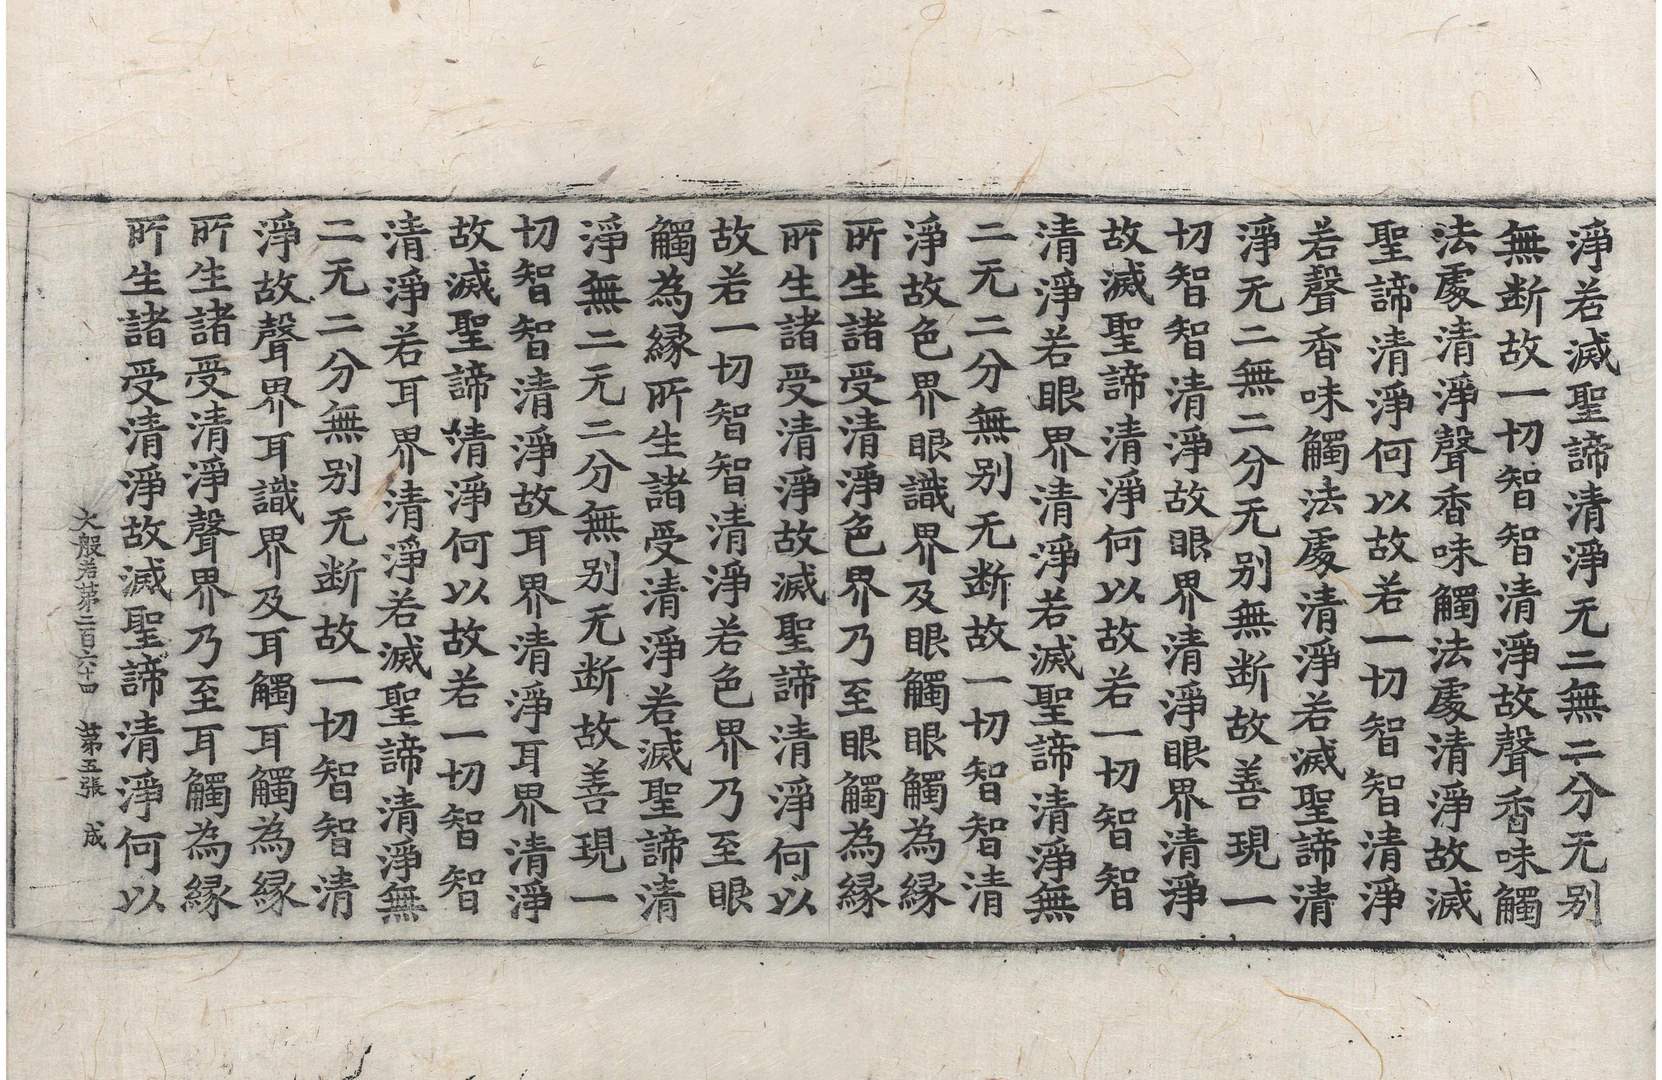 淨若滅聖諦清淨无二無二分无别
無断故一切智智清淨故聲香味觸
法處清淨聲香味觸法處清淨故滅
聖諦清淨何以故若一切智智清淨
若聲香味觸法處清淨若滅聖諦清
淨无二無二分无别無断故善現一
切智智清淨故眼界清淨眼界清淨
故滅聖諦清淨何以故若一切智智
清淨若眼界清淨若滅聖諦清淨無
二无二分無别无断故一切智智清
淨故色界眼識界及眼觸眼觸為縁
所生諸受清淨色界乃至眼觸為縁
所生諸受清淨故滅聖諦清淨何以
故若一切智智清淨若色界乃至眼
觸為縁所生諸受清淨若滅聖諦清
淨無二无二分無别无断故善現一
切智智清淨故耳界清淨耳界清淨
故滅聖諦清淨何以故若一切智智
清淨若耳界清淨若滅聖諦清淨無
二无二分無别无断故一切智智清
淨故聲界耳識界及耳觸耳觸為縁
所生諸受清淨聲界乃至耳觸為縁
所生諸受清淨故滅聖諦清淨何以
大般若第二百六十四 第五張 成